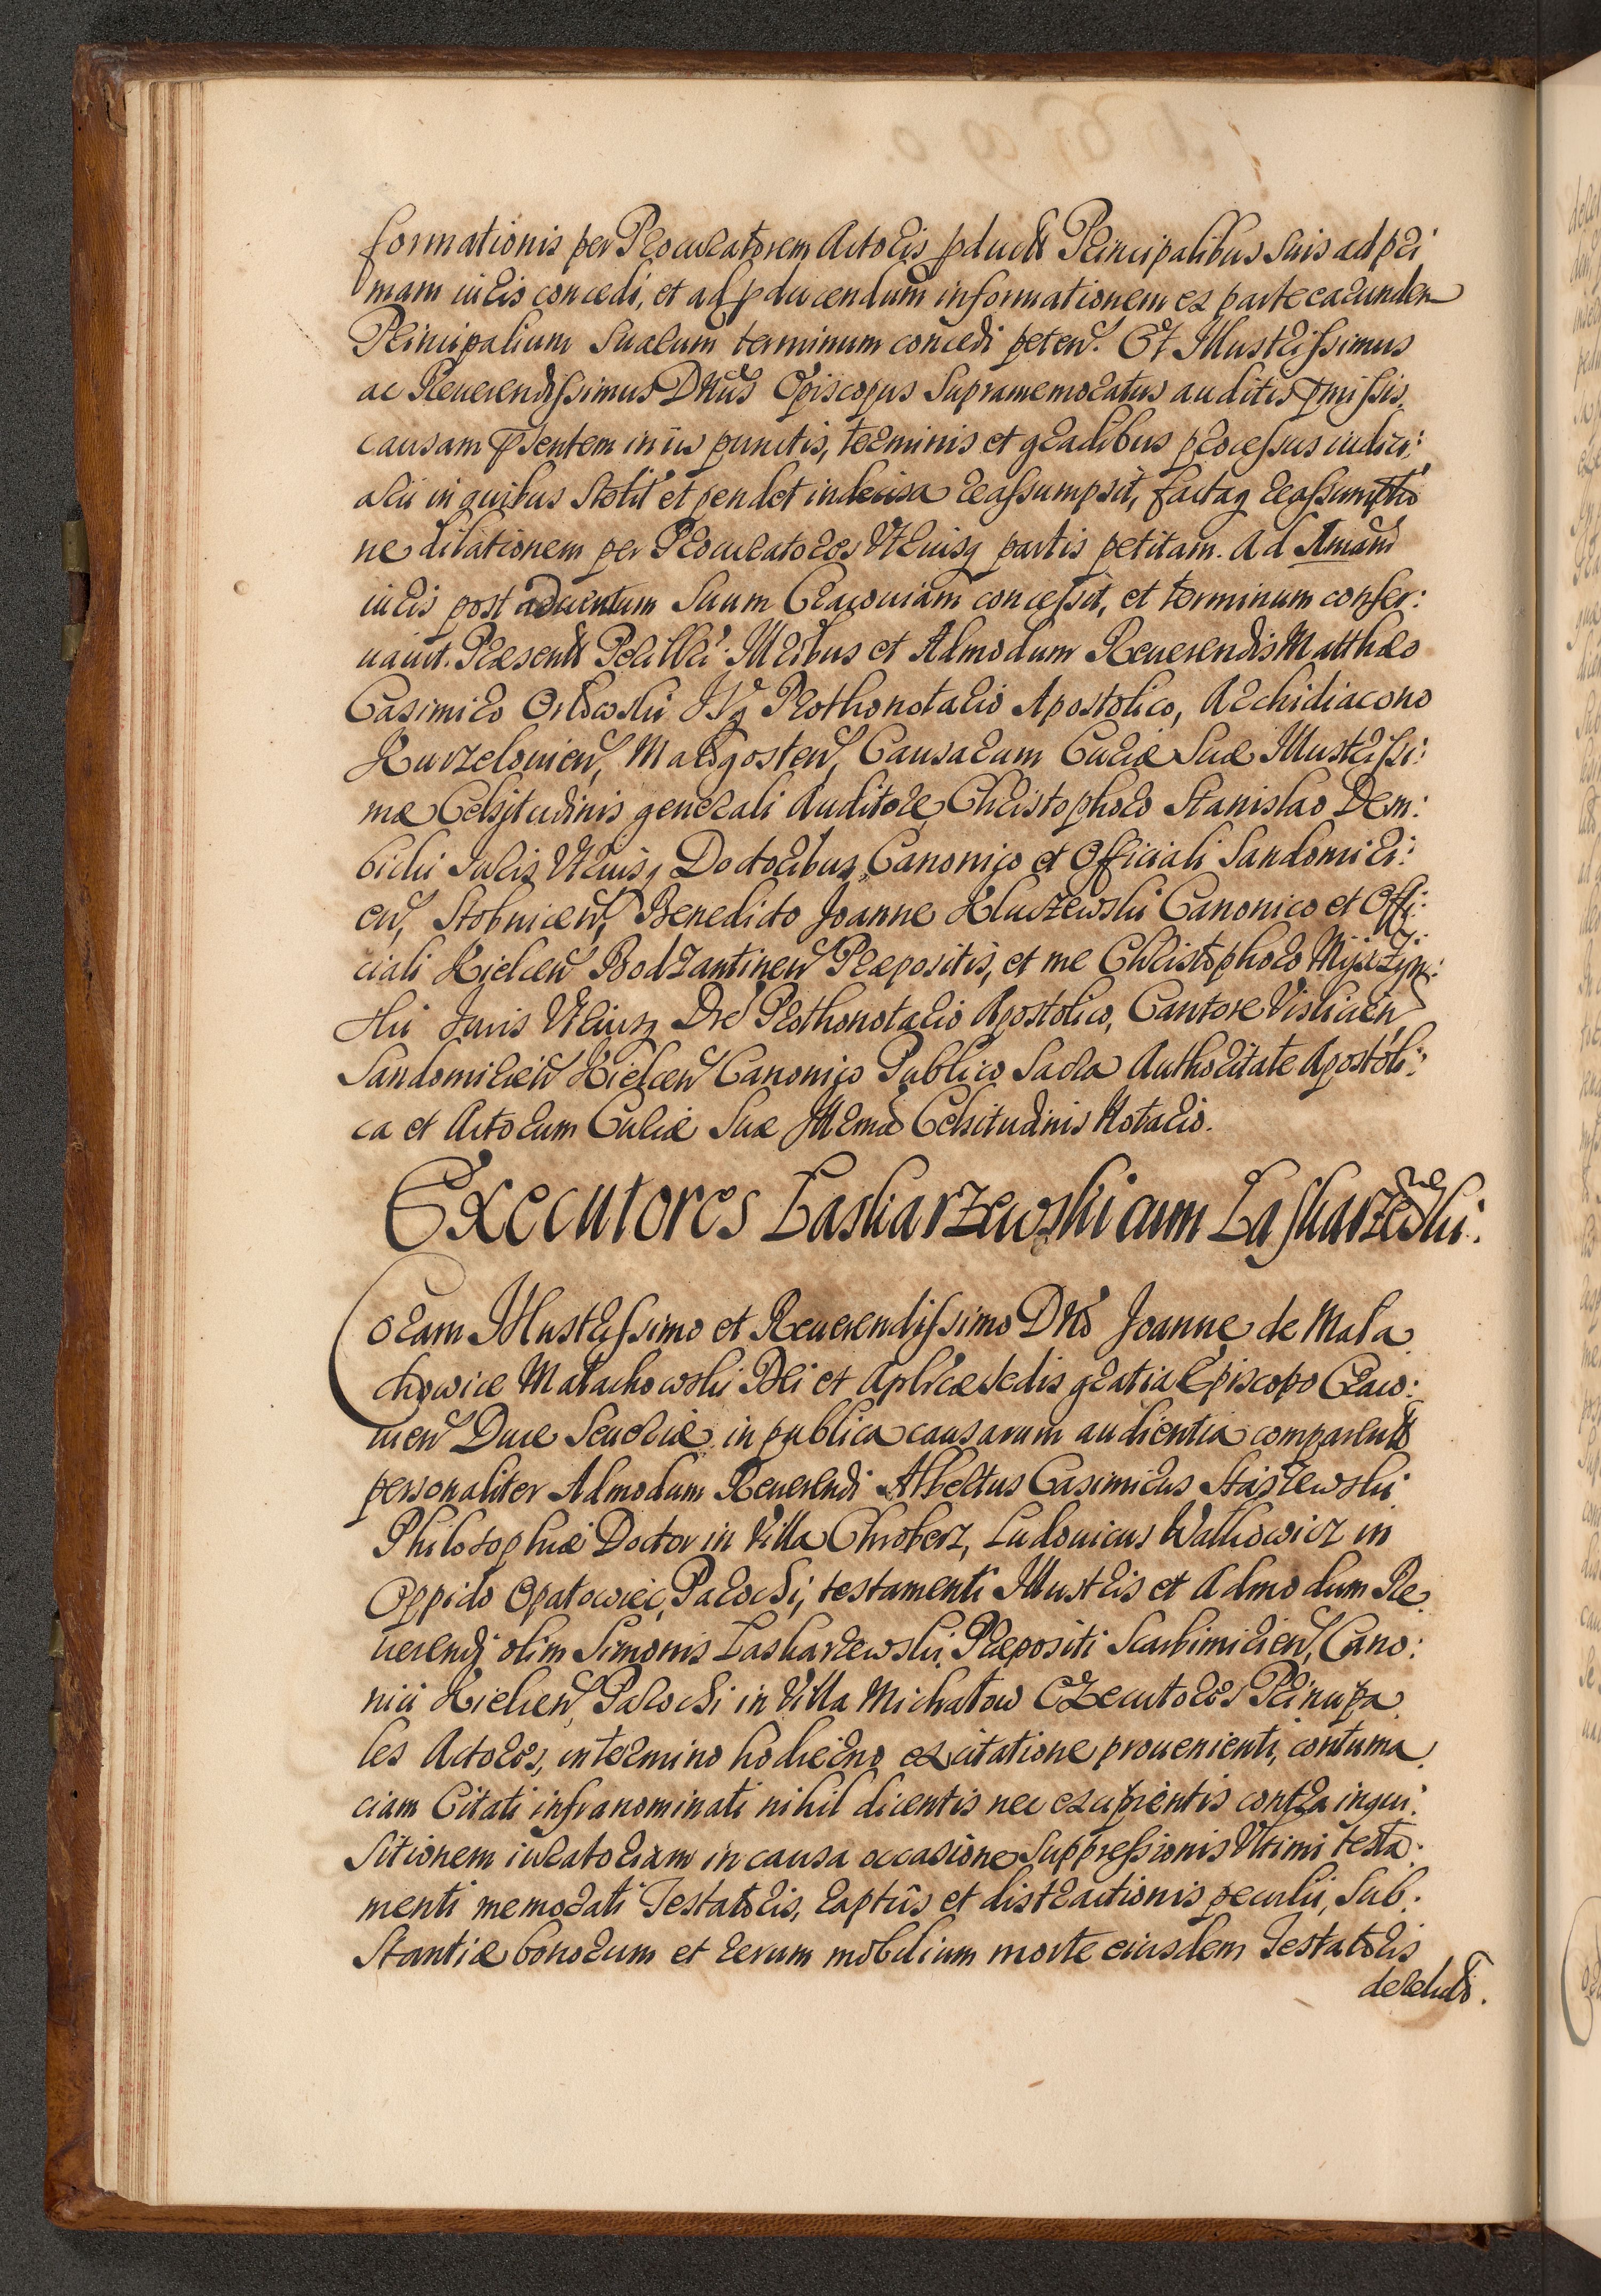 formationis per Procuratorem Actoris pducts Principalibus suis ad pri
mam iuris concedi, et ad pducendum informationem ex parte earundem
Principalium suarum terminum concedi peten. Et Illustrissimus
ac Reuerendissimus Dnus Episcopus supramemoratus auditis pmissis,
causam psentem in iis punctis, terminis et gradibus processus iudici:
alii in quibus stetit et pendet indecisa reassumpsit, factaq reassumptio
ne dilationem per Procuratores Vtriusq partis petitam. Ad Imam
iuris post aduentum suum Cracouiam concessit, et terminum conser:
uauit. Præsents Perilli: Illribus et Admodum Reuerendis Matthæo
Casimiro Orłowski IVq Prothonotario Apostolico, Archidiacono
Kurzelouien, Małogosten, Causarum Curiæ Suæ Illustrissi:
mæ Celsitudinis generali Auditore, Christophoro Stanislao Dem:
bicki Iuris Vtriusq Doctoribus, Canonico et Officiali Sandomiri:
en, Stobnicen, Benedicto Joanne Kluczewski Canonico et Offi:
ciali Kielcen Bodzantinen Præpositis, et me Christophoro Mijszyn:
ski Juris Vtriusq Dre Prothonotario Apostolico, Cantore Vislicien
Sandomirien Kielcen Canonico Publico Sacra Authoritate Apostoli:
ca et Actorum Curiæ Suæ Illrmæ Celsitudinis Notario.
Executores Laskarzewski cum Laskarzewski.
Coram Illustrissimo et Reuerendissimo Dno Joanne de Mala
chowice Małachowski Dei et Aplicæ Sedis gratia Episcopo Craco:
uien Duce Seueriæ in publica causarum audientia comparents
personaliter Admodum Reuerendi Albertus Casimirus Staszewski
Philosophiæ Doctor in Villa Chroberz, Ludouicus Walkowicz in
Oppido Opatowiec, Parochi, testamenti Illustris et Admodum Re
uerendi olim Simonis Laskarzewski Præpositi Scarbimirien, Cano:
nici Kielcen, Parochi in Villa Michałow Executores Principa
les Actores, in termino hodierno ex citatione prouenienti, contuma
ciam Citati infranominati nihil dicentis nec excipientis contra inqui:
sitionem iuratoriam in causa occasione suppressionis Vltimi testa:
menti memorati Testatoris, raptûs et distractionis peculii, sub:
stantiæ bonorum et rerum mobilium morte eiusdem Testatoris
derelicto.